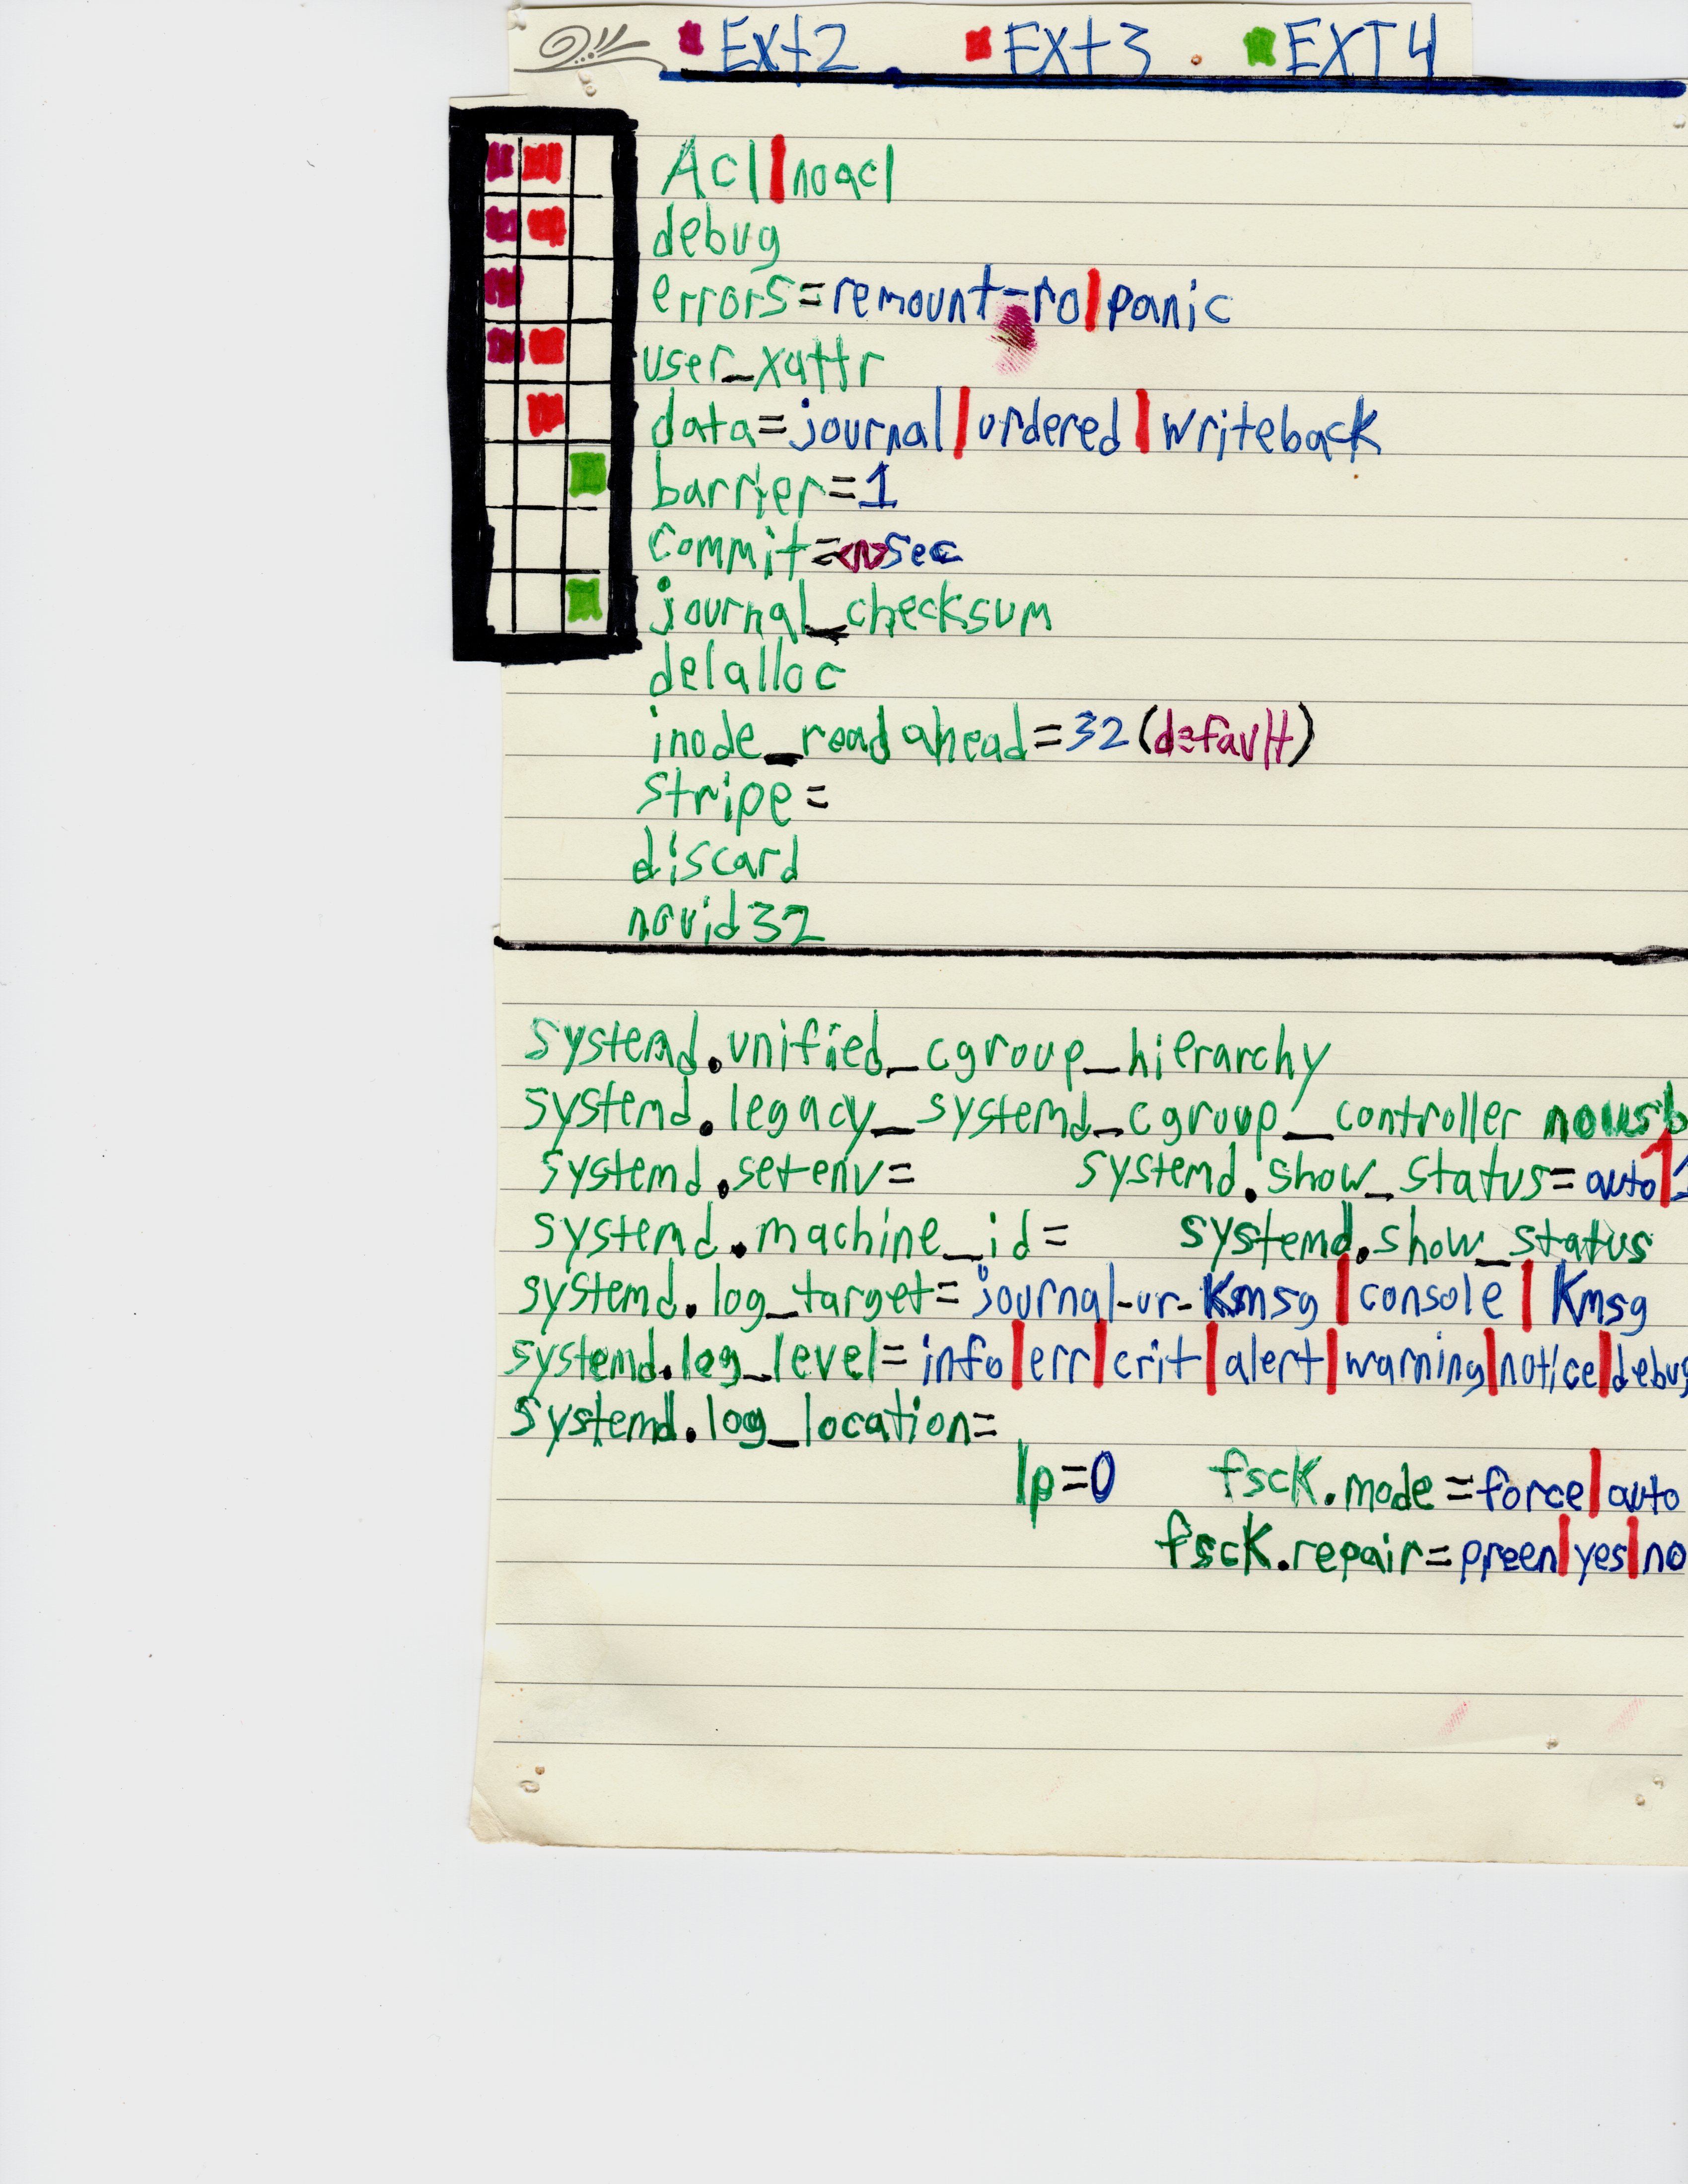 Ext2 Ext3 EXT4
Acl|noacl
debug
errors=remount-ro|panic
user_xattr
data=journal|ordered|writeback
barrier=1
commit=<n>sec
journal_checksum
delalloc
inode_readahead=32(default)
stripe=
discard
nouid32
systemd.unified_cgroup_hierarchy
systemd.legacy_systemd_cgroup_controller nousb
systemd.setenv= systemd.show_status=auto|1
systemd.machine_id= systemd.show_status
systemd.log_target=journal-or-Kmsg|console|Kmsg
systemd.log_level=info|err|crit|alert|warning|notice|debug
systemd.log_location=
lp=0 fscK.mode=force|auto
fscK.repair=preen|yes|no